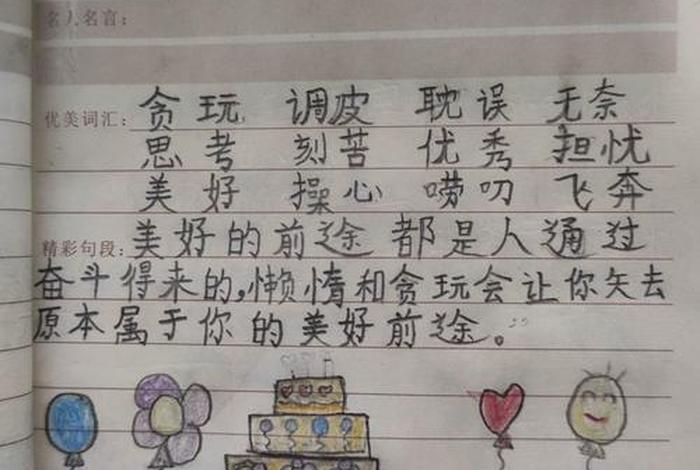 名人名言：
优美词汇：贪玩 调皮 耽误 无奈
思考 刻苦 优秀 担忧
美好 操心 唠叨 飞奔
精彩句段：美好的前途都是人通过
奋斗得来的，懒惰和贪玩会让你矢去
原本属于你的美好前途。